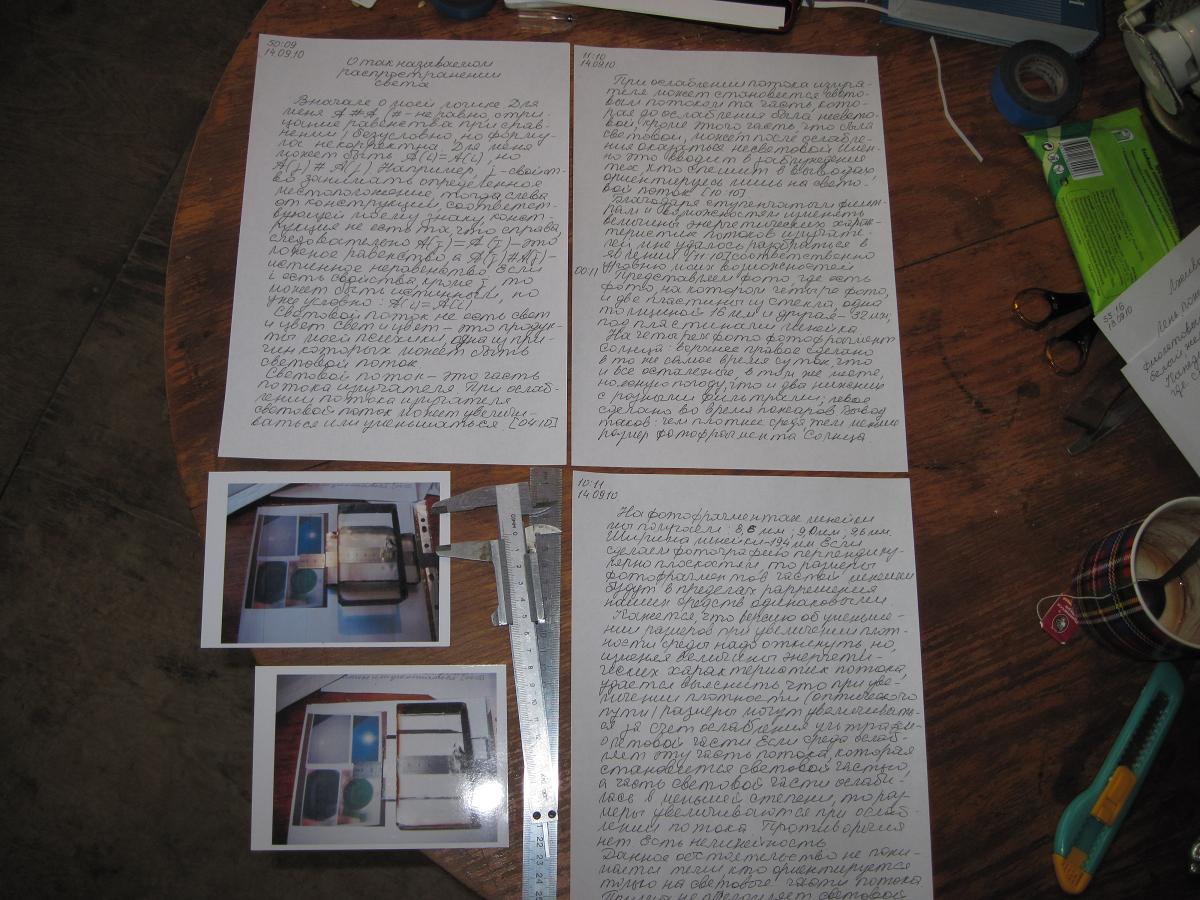 50:09
14.09.10
О так называемом
распространении
света
Вначале о моей логике. Для
меня А # А, (# - неравно, отри-
цание равенства при срав-
нении), безусловно, но форму-
ла некорректна. Для меня
может быть А(i) = А(i), но
А(j) # А(j). Например, j - свойст-
во занимать определенное
местоположение, тогда слева
от конструкции соответст-
вующей моему знаку, конст-
рукция не есть та, что справа,
следовательно А(j) = А(j) - это
ложное равенство, а А(j) # А(j) -
истинное неравенство. Если
i есть свойства, кроме j, то
может быть истинным, но
уже условно: А(i) = А(i)
Световой поток не есть свет
и цвет. Свет и цвет - это продук-
ты моей психики, одна из при-
чин которых может быть
световой поток
Световой поток - это часть
потока излучателя. При ослаб-
лении потока излучателя
световой поток может увеличи-
ваться или уменьшаться. [04:10]
11:10
14.09.10
При ослаблении потока излуча-
теля может становиться свето-
вым потоком та часть, кото-
рая до ослабления была несвето-
вой, кроме того часть, что была
световой, может после ослабле-
ния оказаться несветовой. Имен-
но это вводит в заблуждение
тех, кто спешит в выводах,
ориентируясь лишь на свето-
вой поток. [10:10]
Благодаря ступенчатым фильт-
рам и возможностям изменять
величины энергетических харак-
теристик потоков излучате-
лей мне удалось разобраться в
явлении [11:10] соответственно
уровню моих возможностей
00:11 Представляем фото, где есть
фото, на котором четыре фото,
и две пластины из стекла, одна
толщиной 16 мм и другая - 32 мм;
под пластинами линейка
На четырех фото фотофрагмент
Солнца: верхнее правое сделано
в то же самое время суток, что
и все остальные, в том же месте,
но ясную погоду, что и два нижние
с разными фильтрами; левое
сделано во время пожаров. Вывод
таков: чем плотнее среда, тем меньше
размер фотофрагмента Солнца.
10:11
14.09.10
На фотофрагментах линейки
мы получаем: 8,6 мм; 9,0 мм; 9,6 мм.
Ширина линейки - 19,4 мм. Если
сделаем фотографию перпендику-
лярно плоскостям, то размеры
фотофрагментов частей линейки
будут в пределах разрешения
наших средств одинаковыми
Кажется, что версию об уменьше-
нии размеров при увеличении плот-
ности среды надо откинуть, но,
изменяя величины энергети-
ческих характеристик потока,
удается выяснить, что при уве-
личении плотности (оптического
пути) размеры могут увеличивать-
ся за счет ослабления ультрафи-
олетовой части. Если среда ослаб-
ляет эту часть потока, которая
становится световой частью,
а часть световой части ослаби-
лась в меньшей степени, то раз-
меры увеличиваются при ослаб-
лении потока. Противоречия
нет. Есть нелинейность.
Данное обстоятельство не пони-
мается теми, кто ориентируется
только на световые части потока
55:16
13.09.10